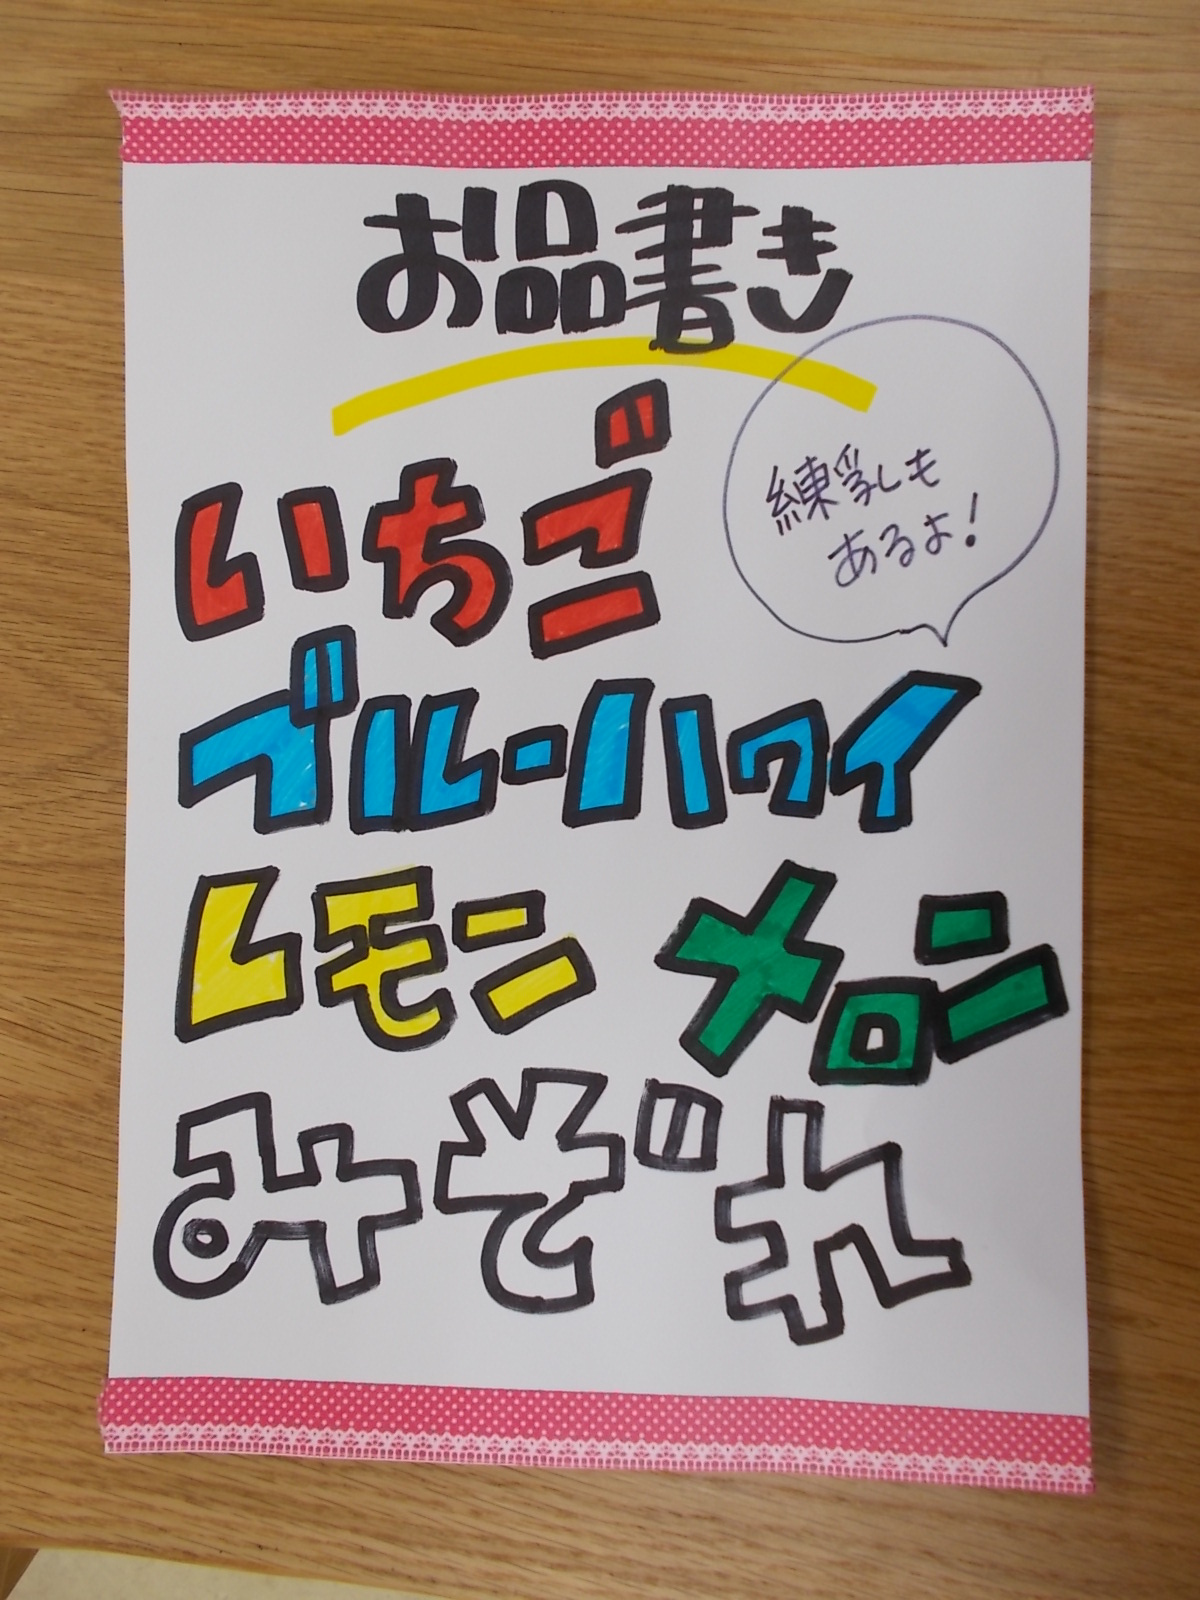 お品書き
いちご
練乳も
あるよ!
ブルーハワイ
レモン メロン
みぞれ